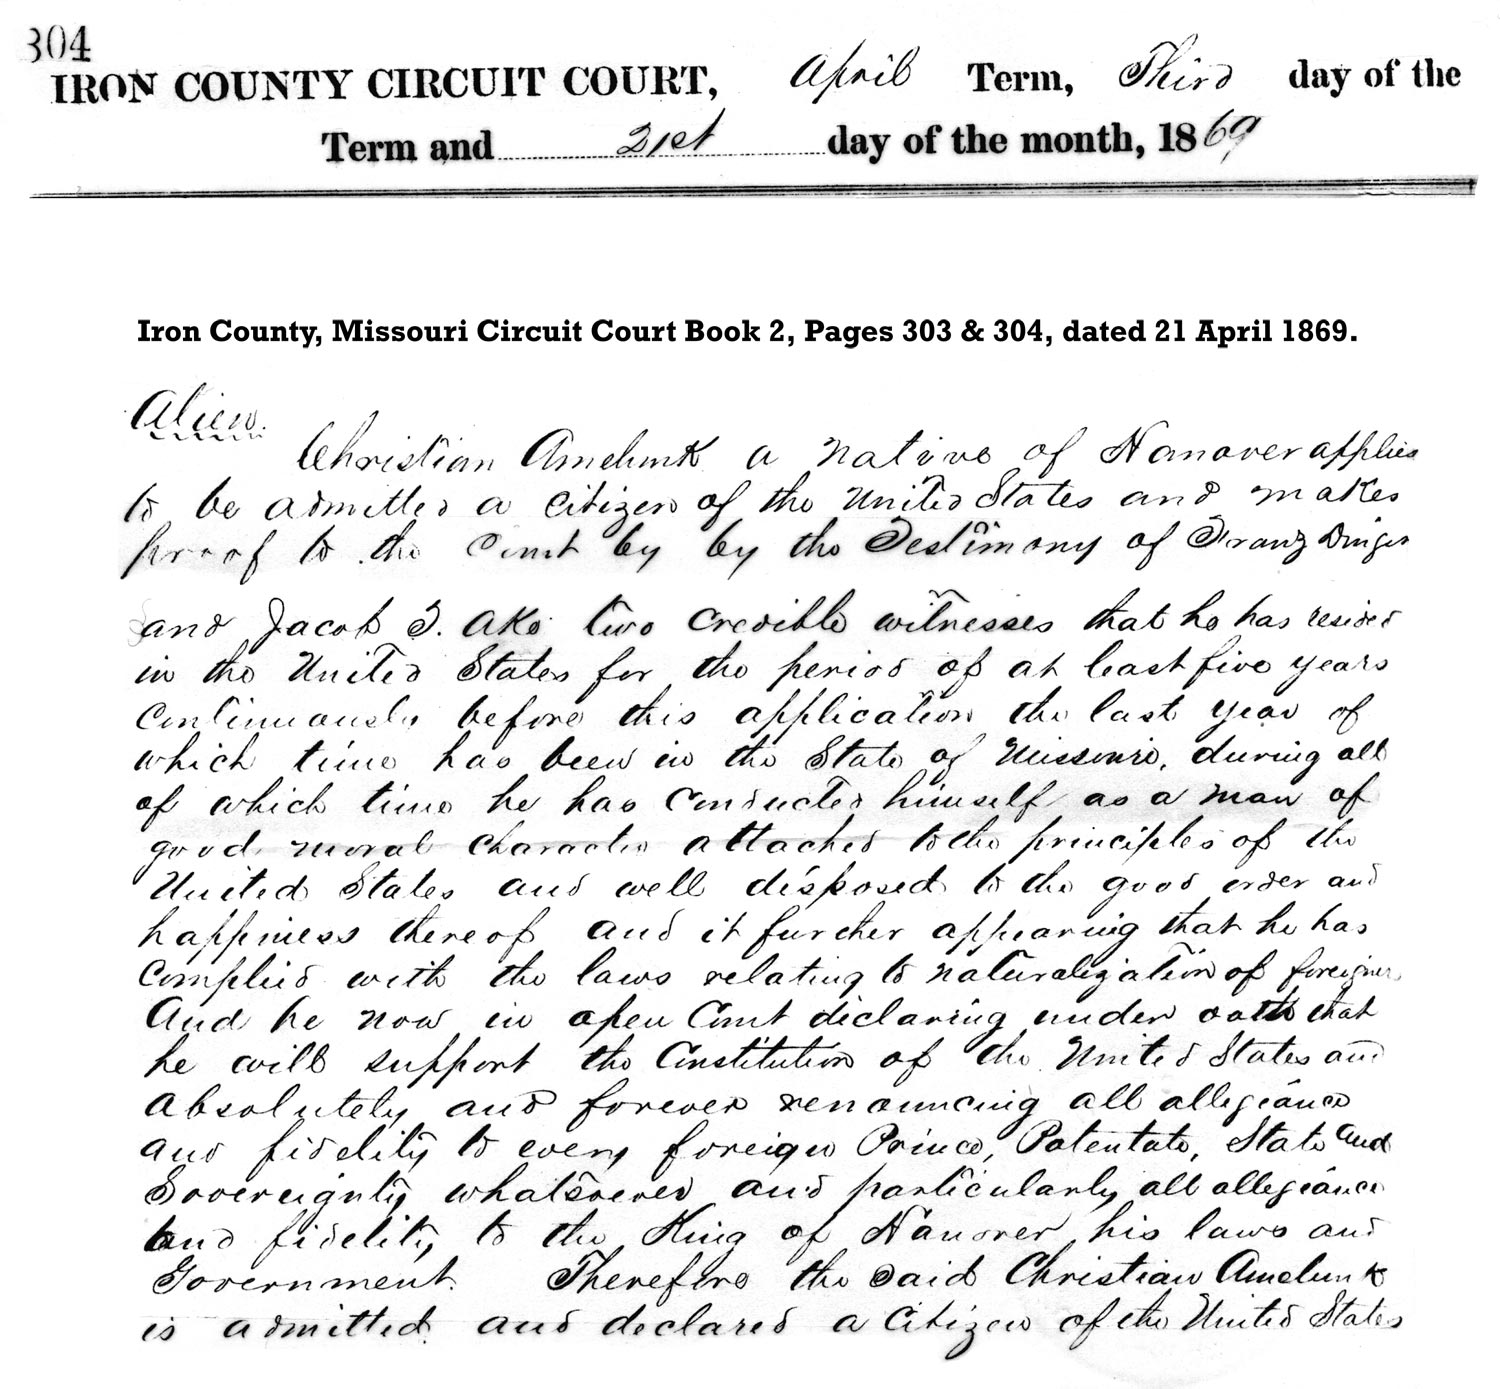 304
IRON COUNTY CIRCUIT COURT, April Term, Third day of the
Term and 21st day of the month, 1869
Iron County, Missouri Circuit Court Book 2, Pages 303 & 304, dated 21 April 1869.
Alien.
Christian Amelunk a native of Hanover applies
to be admitted a citizen of the United States and makes
proof to the Court by by the Testimony of Franz Dinger
and Jacob T. Ake two credible witnesses that he has resided
in the United States for the period of at least five years
continuously before this application the last year of
which time has been in the State of Missouri, during all
of which time he has conducted himself as a man of
good moral character attached to the principles of the
United States and well disposed to the good order and
happiness thereof and it further appearing that he has
complied with the laws relating to naturalization of foreigners
And he now in open Court declaring under oath that
he will support the Constitution of the United States and
absolutely and forever renouncing all allegiance
and fidelity to every foreign Prince, Potentate, State and
Sovereignty whatsoever and particularly all allegiance
and fidelity to the King of Hanover his laws and
Government. Therefore the said Christian Amelunk
is admitted and declared a Citizen of the United States